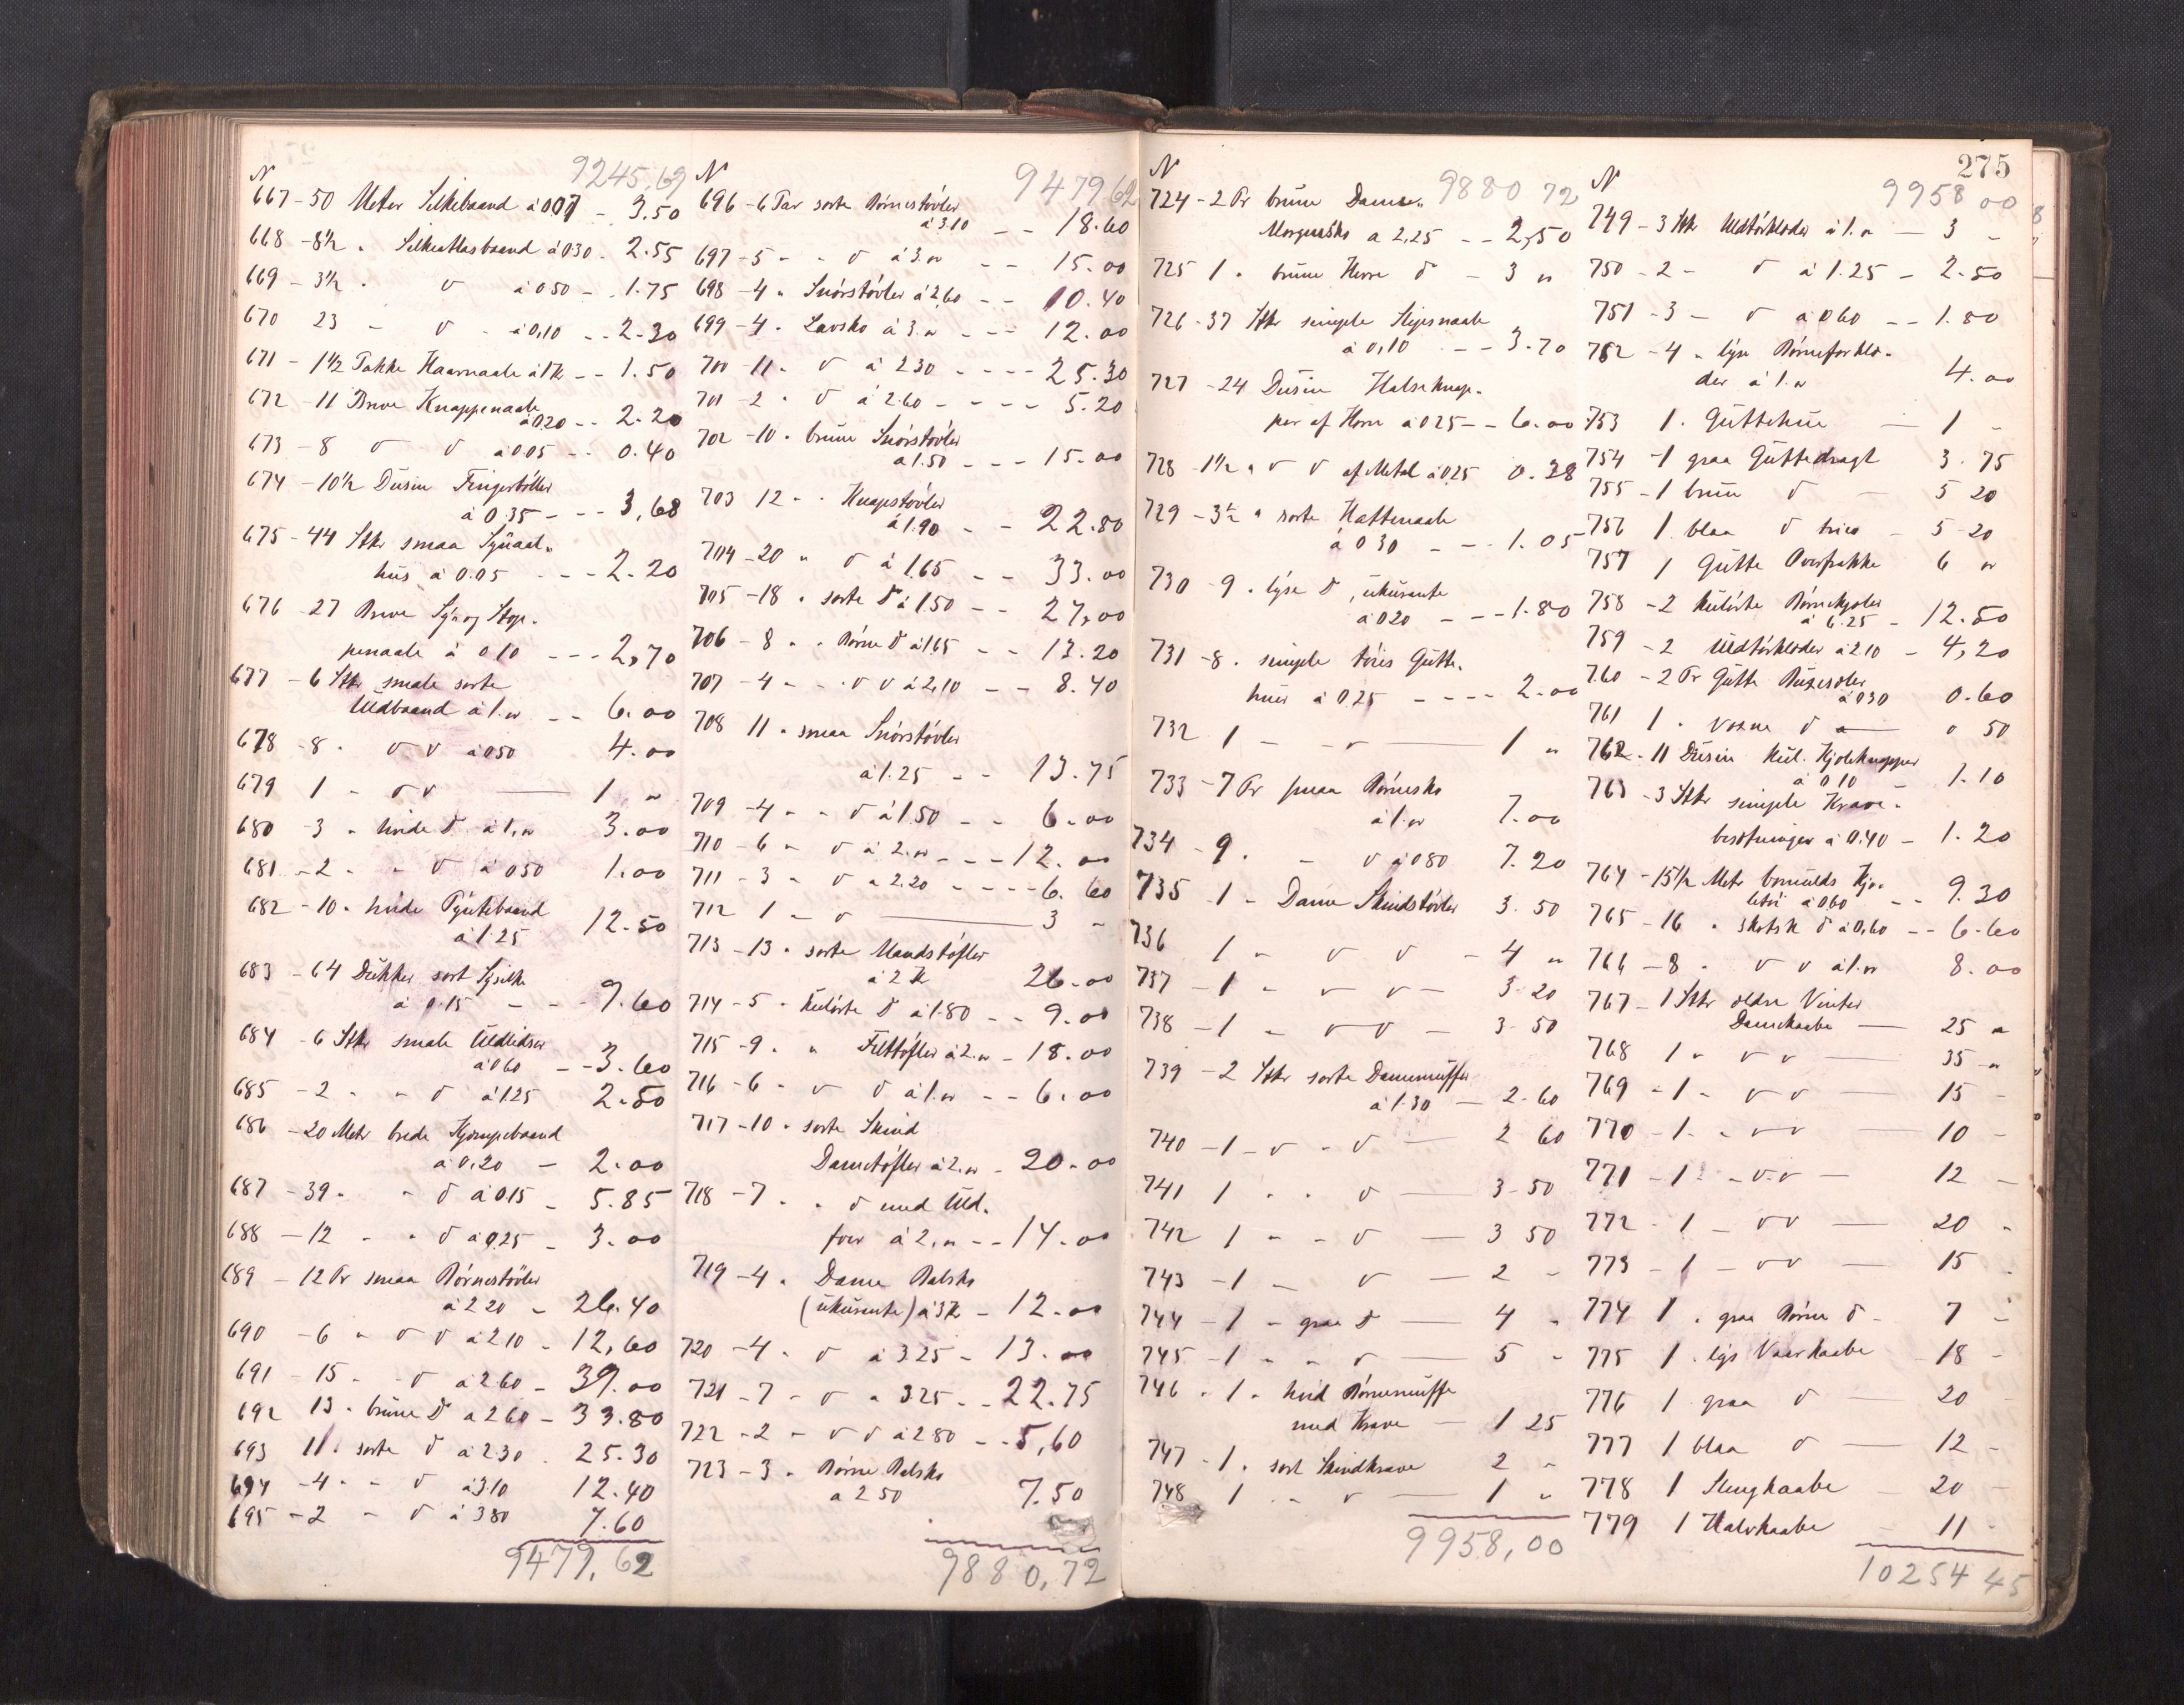 N 9245,62
667 - 50 Meter Silkebaand à 007 - 3.50
668 - 8½ " Silkeatlasbaand à 030 - 2.55
669 - 3½ " d à 050 - - 1.75
670 23 - d - à 0,10 - - 2.30
671 - 1½ Pakke Haarnaale à 1 Kr - - 1.50
672 - 11 Breve Knappenaale
à 020 - - 2.20
673 - 8 d d à 005 - - 0.40
674 - 10½ Dusin Fingerbøller
à 0.35 - - - 3,68
675 - 44 Stkr smaa Synaal-
hus à 0.05 - - - 2.20
676 - 27 Breve Sy og Stop-
penaale à 010 - - - 2,70
677 - 6 Stkr smale sorte
Uldbaand à 1. " - - 6.00
678 - 8 - d d à 050 4.00
679 1 - d d — 1 "
680 - 3 " hvide d à 1, " 3.00
681 - 2 - " d à 050 1.00
682 - 10 " hvide Pyntebaand
à 1.25 12.50
683 - 64 Dukker sort Sysilke
à 0.15 - - - 9.60
684 - 6 Stkr smale Uldlidser
à 060 - - 3.60
685 - 2 - " d à 125 2.50
686 - 20 Metr brede Kjempebaand
à 0,20 - 2.00
687 - 39 " " d à 015 - 5.85
688 - 12 - " d à 0,25 - 3.00
689 - 12 Pr smaa Børnestøvler
à 2 20 - 26.40
690 - 6 " d d à 210 - 12,60
691 - 15 - - d à 260 - 39.00
692 13 " brune d à 260 - 33.80
693 11 " sorte d à 230 - 25.30
694 - 4 " - d à 310 12.40
695 - 2 - d à 380 7.60
9479,62
N 9479 62
696 - 6 Par sorte Børnestøvler
à 310 - - 18.60
697 - 5 - " d à 3. " - - 15.00
698 - 4 " Snørstøvler à 2,60 - - 10.40
699 - 4 " Lavsko à 3. " - - - 12.00
700 - 11 " d à 230 - - - - 25.30
701 - 2 " d à 260 - - - - 5.20
702 - 10 " brune Snørstøvler
à 1.50 - - - 15.00
703 12 - " Knapstøvler
à 1.90 - - 22.80
704 - 20 " d à 1.65 - - 33.00
705 - 18 " sorte d à 1.50 - - 27,00
706 - 8 " " Børne d à 165 - - 13.20
707 - 4 - - " d d à 2,10 - - 8.40
708 11 " smaa Snørstøvler
à 1.25 - - 13.75
709 - 4 - " d à 1.50 - - 6.00
710 - 6 " d à 2. " - - - 12.00
711 - 3 " d à 2.20 - - - - 6.60
712 1 - d — 3 -
713 - 13 " sorte Mandstøfler
à 2 Kr 26.00
714 - 5 " kulørte d à 1.80 - - 9.00
715 - 9 " " Filttøfler à 2. " - 18.00
716 - 6 " d d à 1. " - - 6.00
717 - 10 " sorte Skind
Dametøfler à 2. " - 20.00
718 - 7 " " d med Uld-
foer à 2, " - - 14.00
719 - 4 " Dame Balsko
(ukurante) à 3 Kr - 12.00
720 - 4 " d à 325 - 13.00
721 - 7 - d à 325 - - 22.75
722 - 2 - d d à 280 - - 5,60
723 - 3 " Børne Balsko
à 2 50 7.50
9880,72
275
N 9880 72
724 - 2 Pr brune Dame-
Morgensko a 2,25 - - 2,50
725 1 " brune Herre d - 3 "
726 - 37 Stkr simple Slipsnaale
à 0,10 - - 3.70
727 - 24 Dusin Halseknap-
per af Horn à 025 - - 6.00
728 - 1½ " d d af Metal à 0,25 0.38
729 - 3½ " sorte Hattenaale
à 0 30 - - - 1.05
730 - 9 " lyse d, ukurante
à 020 - - - 1.80
731 - 8 " simple Gutte-
huer à 0.25 - - - - 2.00
732 1 - - d — 1 "
733 - 7 Pr smaa Børnesko
à 1. " 7.00
734 - 9 " - d à 080 7.20
735 1 - Dame Skindstøvler 3.50
736 1 - d d - 4 "
737 - 1 - d d - 3.20
738 - 1 - d d - 3-50
739 - 2 Stkr sorte Damemuffer
à 1.30 - 2.60
740 - 1 - d - d — 2 60
741 1 " " d — 3-50
742 1 - - d — 3 50
743 - 1 - d — 2 -
744 - 1 - graa d — 4 "
745 - 1 - - d — 5 -
746 - 1 " hvid Børnemuffe
med Krave — 1 25
747 - 1 " sort Skindkrave 2 -
748 1 - - d — 1 "
9958,00
N 9958 00
749 - 3 Stkr Uldtørklæder à 1. " — 3 -
750 - 2 - d à 1.25 - 2.50
751 - 3 - d à 060 - - 1.80
752 - 4 " lyse Børneforklæ-
der à 1. " 4.00
753 1 " Guttehue — 1 -
754 - 1 graa Guttedragt 3.75
755 - 1 brun d — 5 20
756 1 blaa d trico - 5-20
757 1 Gutte Overfrakke 6 "
758 - 2 kulørte Børnekjoler
à 6.25 - 12.50
759 - 2 Uldtørklæder à 2.10 - 4,20
760 - 2 Pr Gutte Buxeseler
à 030 0.60
761 1 " voxne d — 0 50
762 - 11 Dusin kul. Kjoleknapper
à 0 10 1.10
763 - 3 Stkr simple Krave-
besætninger à 0.40 - 1.20
764 - 15½ Metr bomulds Kjo-
letøi à 060 - - 9.30
765 - 16 " skotsk d à 0,60 - - 6.60
766 - 8 " d d à 1. " 8.00
767 - 1 Stkr ældre Vinter
Damekaabe — 25 "
768 1 " d d — 35 -
769 - 1 - d d — 15 -
770 - 1 - - d d — 10 -
771 - 1 - - d d — 12 -
772 - 1 - d d — 20 -
773 - 1 - d d — 15 -
774 1 " graa Børne d - 7 -
775 1 " lys Vaarkaabe 18 -
776 1 graa d — 20 -
777 1 blaa d — 12 -
778 1 Slengkaabe - 20 -
779 1 Halvkaabe - 11 -
10254 45